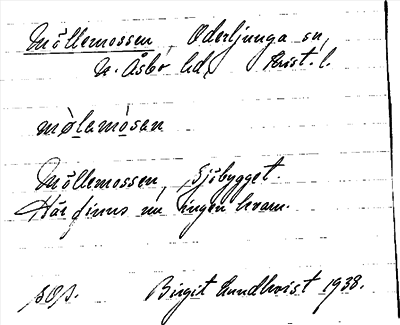 Möllemossen, Oderljunga sn,
N. Åsbo hd, Krist. l.
mòlamósan
Möllemossen, Sjöbygget
Här finns nu ingen kvarn.
Birgit Lundkvist 1938.